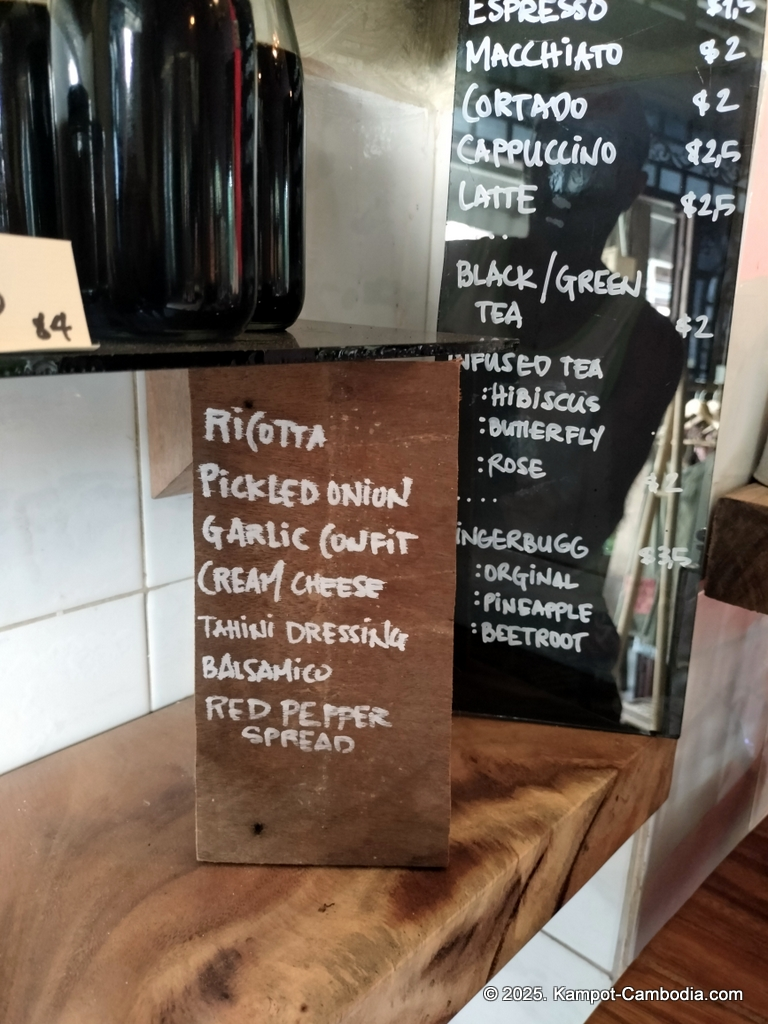 $4
RICOTTA
PICKLED ONION
GARLIC CONFIT
CREAM CHEESE
TAHINI DRESSING
BALSAMICO
RED PEPPER
SPREAD
ESPRESSO $1,5
MACCHIATO $2
CORTADO $2
CAPPUCCINO $2,5
LATTE $2,5
...
BLACK/GREEN
TEA $2
INFUSED TEA
:HIBISCUS
:BUTTERFLY
:ROSE $2
....
INGERBUGG $3,5
:ORGINAL
:PINEAPPLE
:BEETROOT
© 2025. Kampot-Cambodia.com